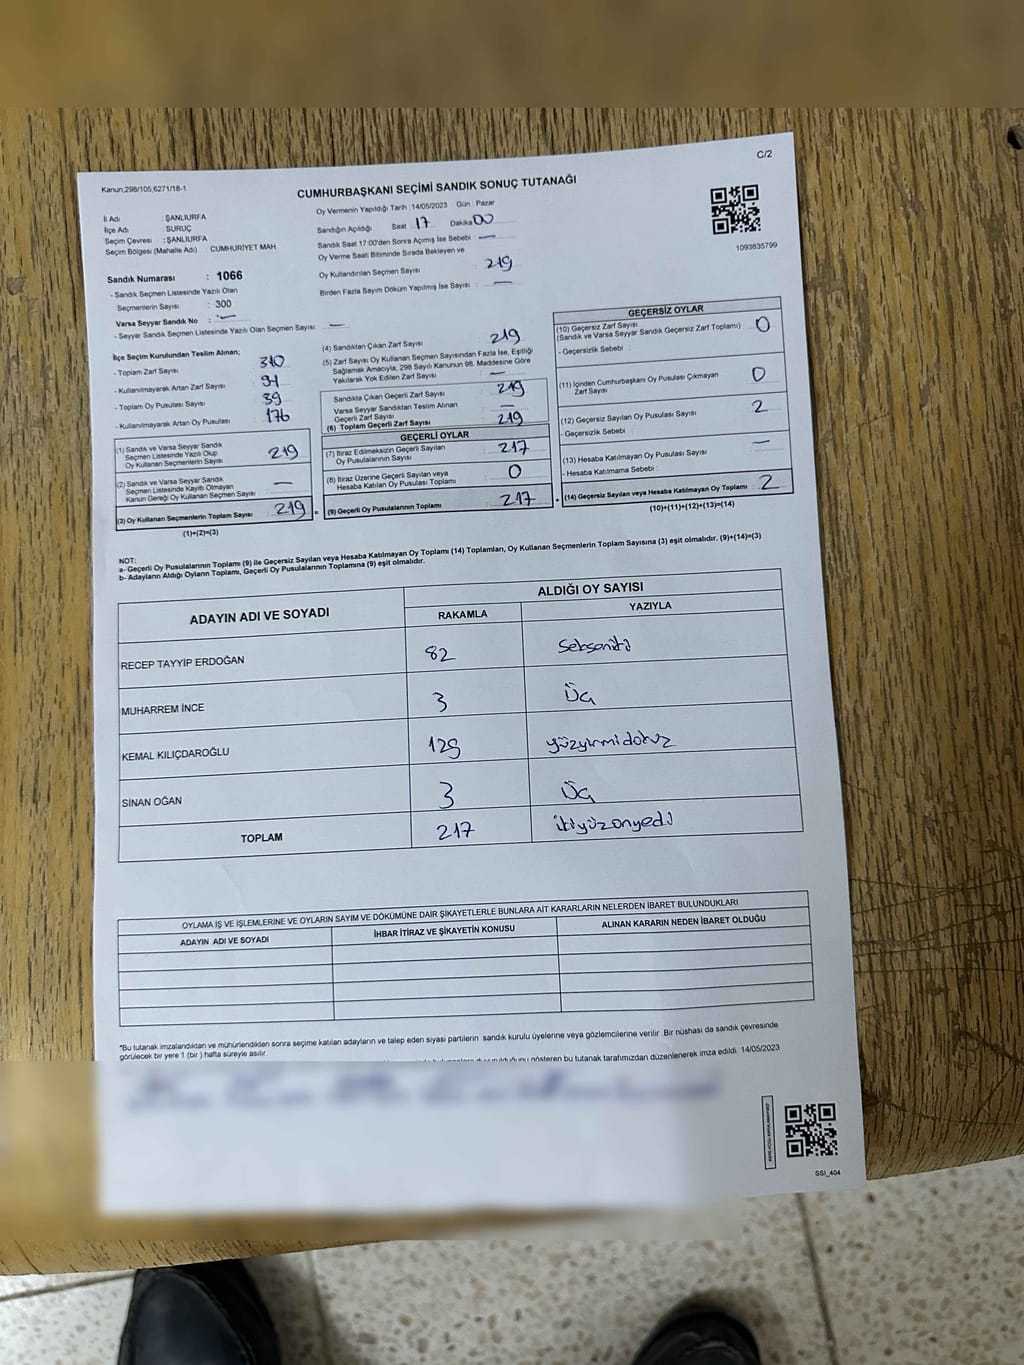 C/2
Kanun;298/105;6271/18-1
CUMHURBAŞKANI SEÇİMİ SANDIK SONUÇ TUTANAĞI
İl Adı : ŞANLIURFA
İlçe Adı : SURUÇ
Seçim Çevresi : ŞANLIURFA
Seçim Bölgesi (Mahalle Adı) : CUMHURİYET MAH.
Sandık Numarası : 1066
- Sandık Seçmen Listesinde Yazılı Olan
Seçmenlerin Sayısı : 300
Varsa Seyyar Sandık No : —
- Seyyar Sandık Seçmen Listesinde Yazılı Olan Seçmen Sayısı: —
Oy Vermenin Yapıldığı Tarih : 14/05/2023 Gün : Pazar
Sandığın Açıldığı Saat 17 Dakika 00
Sandık Saat 17:00'den Sonra Açılmış İse Sebebi : —
Oy Verme Saati Bitiminde Sırada Bekleyen ve
Oy Kullandırılan Seçmen Sayısı : 219
Birden Fazla Sayım Döküm Yapılmış İse Sayısı : —
1093835799
İlçe Seçim Kurulundan Teslim Alınan;
- Toplam Zarf Sayısı : 310
- Kullanılmayarak Artan Zarf Sayısı : 91
- Toplam Oy Pusulası Sayısı : 39
- Kullanılmayarak Artan Oy Pusulası : 176
(1) Sandık ve Varsa Seyyar Sandık
Seçmen Listesinde Yazılı Olup
Oy Kullanan Seçmenlerin Sayısı : 219
(2) Sandık ve Varsa Seyyar Sandık
Seçmen Listesinde Kayıtlı Olmayan
Kanun Gereği Oy Kullanan Seçmen Sayısı : —
(3) Oy Kullanan Seçmenlerin Toplam Sayısı : 219
(1)+(2)=(3)
(4) Sandıktan Çıkan Zarf Sayısı : 219
(5) Zarf Sayısı Oy Kullanan Seçmen Sayısından Fazla İse, Eşitliği
Sağlamak Amacıyla, 298 Sayılı Kanunun 98. Maddesine Göre
Yakılarak Yok Edilen Zarf Sayısı : —
Sandıkta Çıkan Geçerli Zarf Sayısı : 219
Varsa Seyyar Sandıktan Teslim Alınan
Geçerli Zarf Sayısı : —
(6) Toplam Geçerli Zarf Sayısı : 219
GEÇERLİ OYLAR
(7) İtiraz Edilmeksizin Geçerli Sayılan
Oy Pusulalarının Sayısı : 217
(8) İtiraz Üzerine Geçerli Sayılan veya
Hesaba Katılan Oy Pusulası Toplamı : 0
= (9) Geçerli Oy Pusulalarının Toplamı : 217
GEÇERSİZ OYLAR
(10) Geçersiz Zarf Sayısı
(Sandık ve Varsa Seyyar Sandık Geçersiz Zarf Toplamı) : 0
- Geçersizlik Sebebi :
(11) İçinden Cumhurbaşkanı Oy Pusulası Çıkmayan
Zarf Sayısı : 0
(12) Geçersiz Sayılan Oy Pusulası Sayısı : 2
- Geçersizlik Sebebi :
(13) Hesaba Katılmayan Oy Pusulası Sayısı : —
- Hesaba Katılmama Sebebi :
+ (14) Geçersiz Sayılan veya Hesaba Katılmayan Oy Toplamı : 2
(10)+(11)+(12)+(13)=(14)
NOT:
a- Geçerli Oy Pusulasının Toplamı (9) ile Geçersiz Sayılan veya Hesaba Katılmayan Oy Toplamı (14) Toplamları, Oy Kullanan Seçmenlerin Toplam Sayısına (3) eşit olmalıdır. (9)+(14)=(3)
b- Adayların Aldığı Oyların Toplamı, Geçerli Oy Pusulalarının Toplamına (9) eşit olmalıdır.
ADAYIN ADI VE SOYADI ALDIĞI OY SAYISI
RAKAMLA YAZIYLA
RECEP TAYYİP ERDOĞAN 82 Sekseniki
MUHARREM İNCE 3 Üç
KEMAL KILIÇDAROĞLU 129 yüzyirmidokuz
SİNAN OĞAN 3 Üç
TOPLAM 217 ikiyüzonyedi
OYLAMA İŞ VE İŞLEMLERİNE VE OYLARIN SAYIM VE DÖKÜMÜNE DAİR ŞİKAYETLERLE BUNLARA AİT KARARLARIN NELERDEN İBARET BULUNDUKLARI
ADAYIN ADI VE SOYADI İHBAR İTİRAZ VE ŞİKAYETİN KONUSU ALINAN KARARIN NEDEN İBARET OLDUĞU
*Bu tutanak imzalandıktan ve mühürlendikten sonra seçime katılan adayların ve talep eden siyasi partilerin sandık kurulu üyelerine veya gözlemcilerine verilir .Bir nüshası da sandık çevresinde
görülecek bir yere 1 (bir ) hafta süreyle asılır.
gösteren bu tutanak tarafımızdan düzenlenerek imza edildi. 14/05/2023
SSI_404